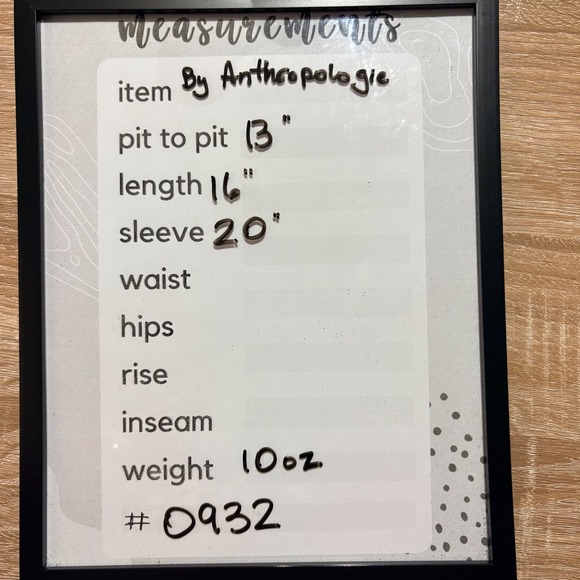 measurements
item By Anthropologie
pit to pit 13"
length 16"
sleeve 20"
waist
hips
rise
inseam
weight 10oz.
# 0932